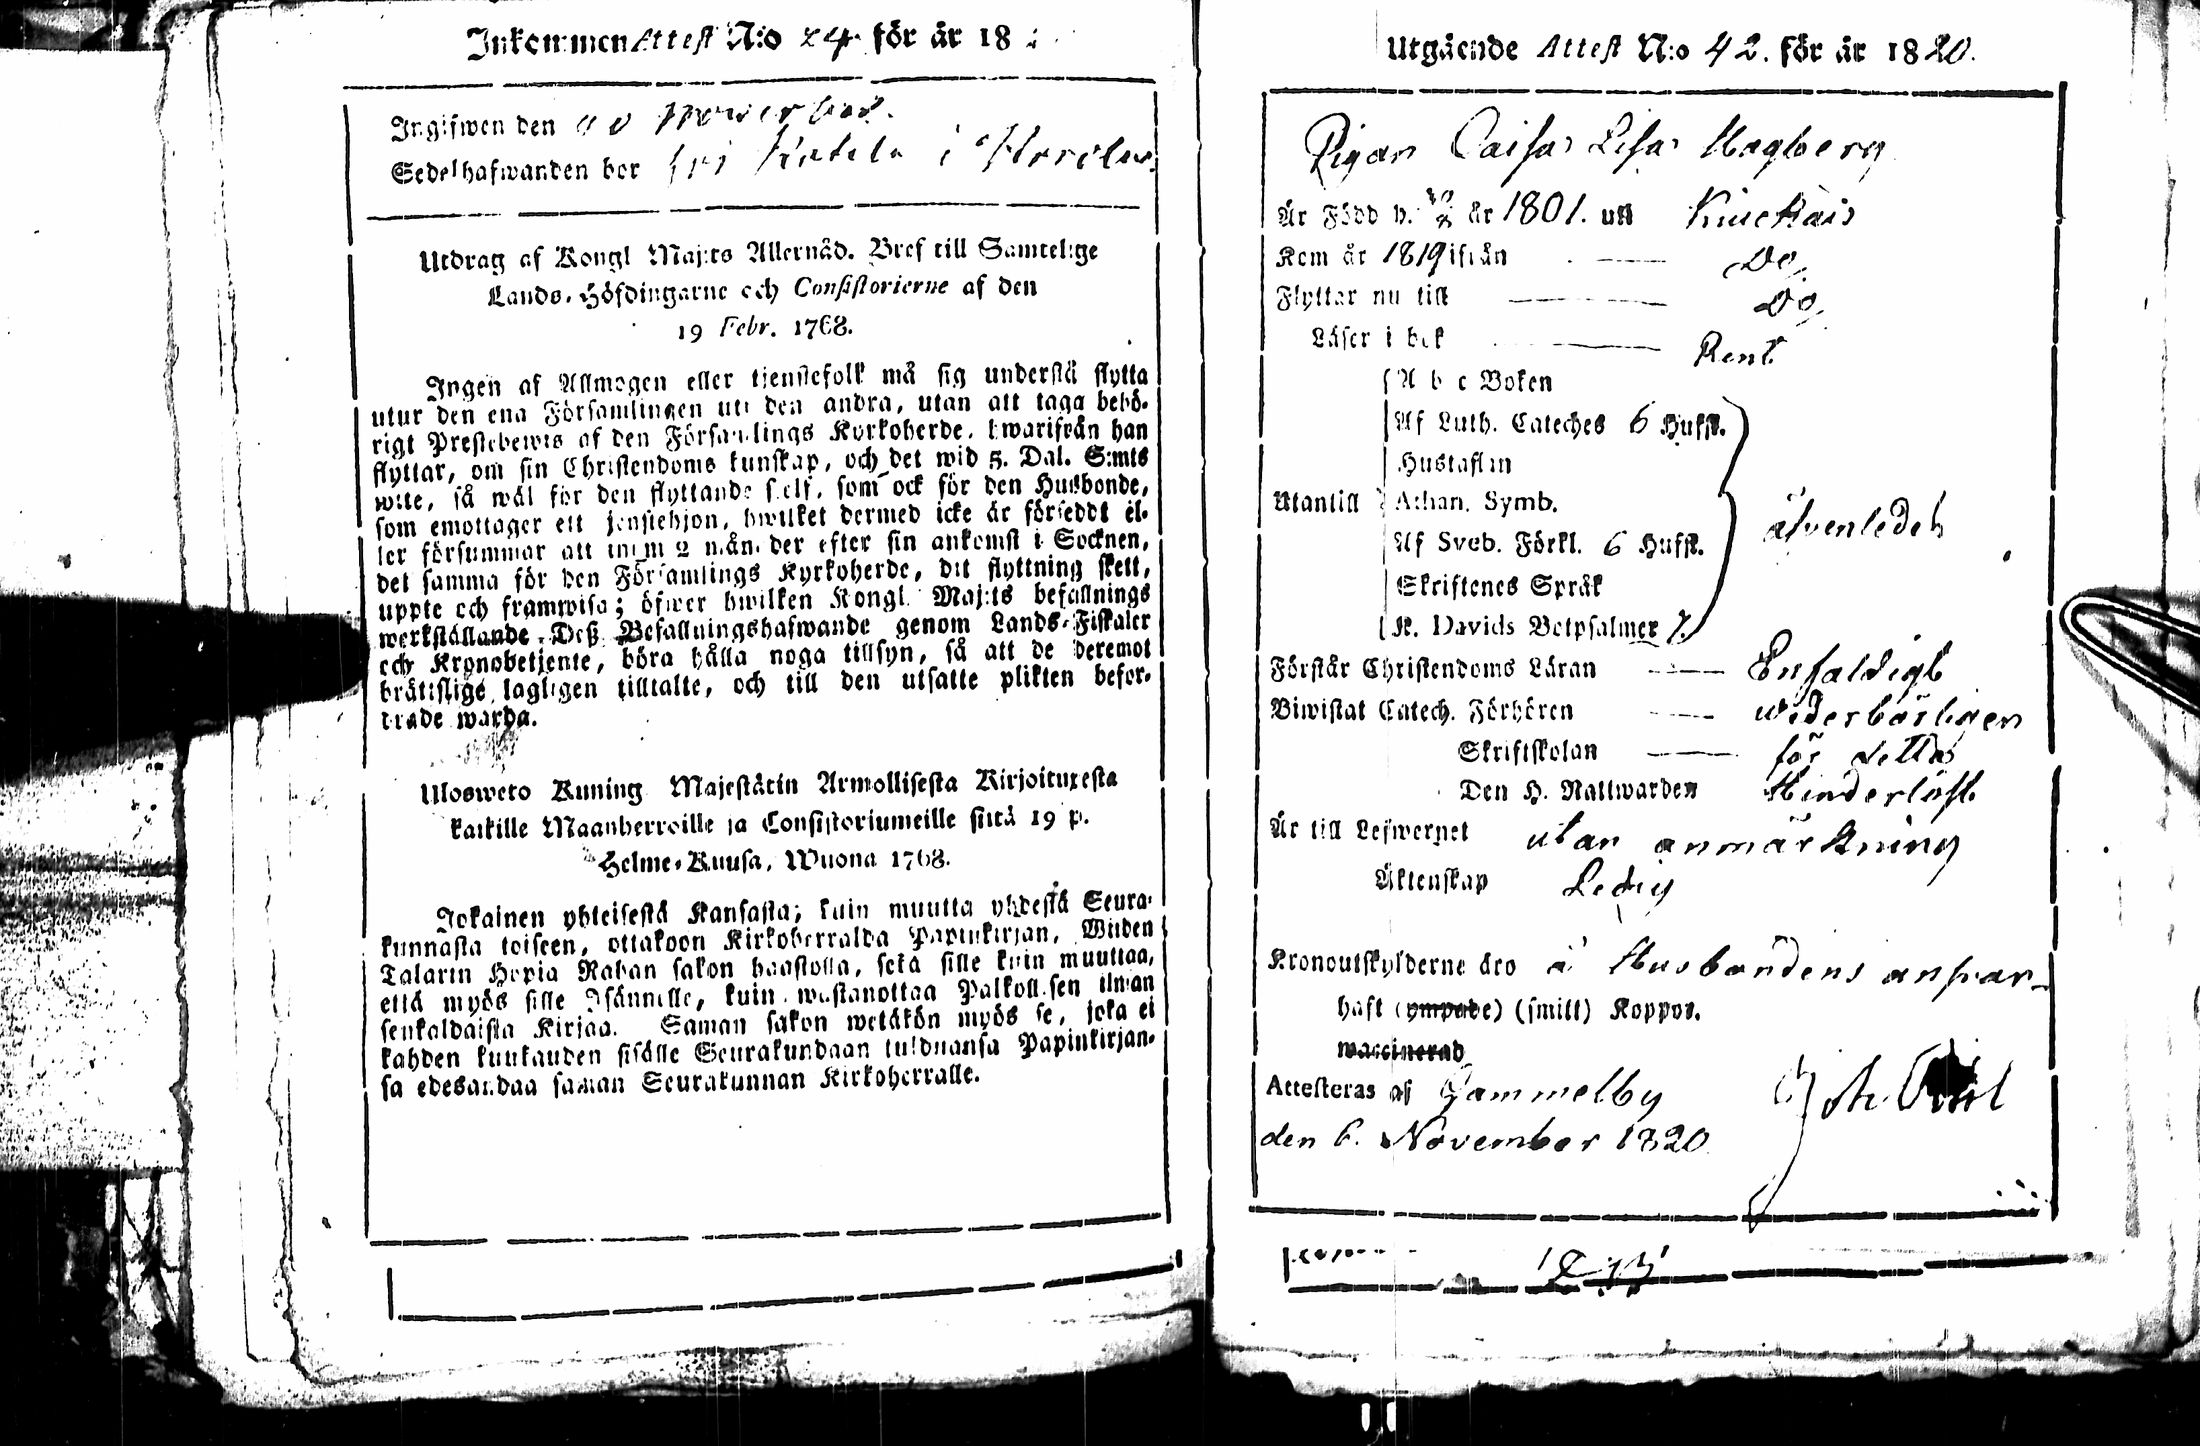 Inkommen Attest N:o 24 för år 18
Ingifwen den November.
Sedelhafwanden bor hos i
Utdrag af Kongl Maj:ts Allernåd. Bref till Samtelige
Lands-Höfdingarne och Consistorierne af den
19 Febr. 1768.
Ingen af Allmogen eller tjenstefolk må sig understå flytta
utur den ena Församlingen uti den andra, utan att taga behö-
rigt Prestebewis af den Församlings Kyrkoherde, hwarifrån han
flyttar, om sin Christendoms kunskap, och det wid 5. Dal. S:mts
wite, så wäl för den flyttande sielf, som ock för den Husbonde,
som emottager ett tjenstehjon, hwilket dermed icke är förseddt el-
ler försummar att inom 2 månader efter sin ankomst i Socknen,
det samma för den Församlings Kyrkoherde, dit flyttning skett,
uppte och framwisa; öfwer hwilken Kongl. Maj:ts befallnings
werkställande Deß Befallningshafwande genom Lands-Fiskaler
och Kronobetjente, böra hålla noga tillsyn, så att de deremot
brättslige lagligen tilltalte, och till den utsatte plikten befor-
drade warda.
Ulosweto Kuning Majestätin Armollisesta Kirjoituxesta
kaikille Maanherroille ja Consistoriumeille siitä 19 p.
Helme-Kuusa, Wuona 1768.
Jokainen yhteisestä Kansasta; kuin muutta yhdestä Seura-
kunnasta toiseen, ottakoon Kirkoherralda Papinkirjan, Wiiden
Talarin Hopia Rahan sakon haastolla, sekä sille kuin muuttaa,
että myös sille Isännälle, kuin wastanottaa Palkollisen ilman
senkaldaista Kirjaa. Saman sakon wetäkön myös se, joka ei
kahden kuukauden sisälle Seurakundaan tulduansa Papinkirjan-
sa edesandaa saman Seurakunnan Kirkoherralle.
Utgående Attest N:o 42. för år 1820.
Pigan Caisa Lisa Hagberg
Är Född d. år 1801. uti
Kom år 1819 ifrån Do,
Flyttar nu till Do,
Läser i bok Rent
A b c Boken
Af Luth. Cateches 6 Hufst.
Hustaflan
Utantill Athan. Symb.
Af Sveb. Förkl. 6 Hufst. äfvenledes
Skriftenes Språk
K. Davids Botpsalmer 7.
Förstår Christendoms Läran Enfaldigt
Biwistat Catech. Förhören wederbörligen
Skriftskolan för detta
Den H. Nattwarden Hinderlöst
Är till Lefwernet utan anmärkning
Äktenskap Ledig
Kronoutskylderne äro å Husbondens answar
haft (ympade) (smitt) Koppor.
waccinerad
Attesteras af Gammelby Joh.
den 6. November 1820